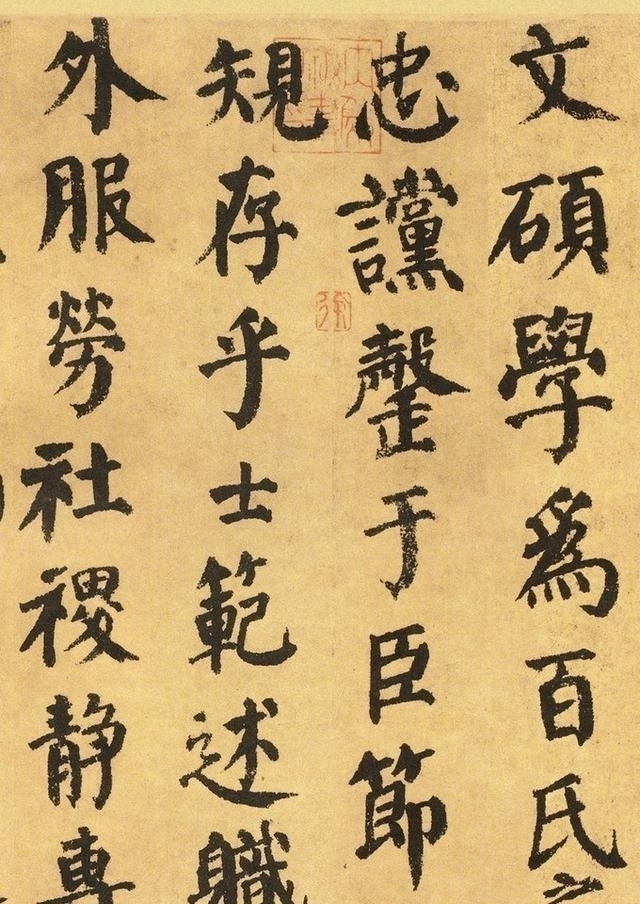 文碩學爲百氏
忠讜罄于臣節
䂓存乎士範述職
外服勞社稷静專